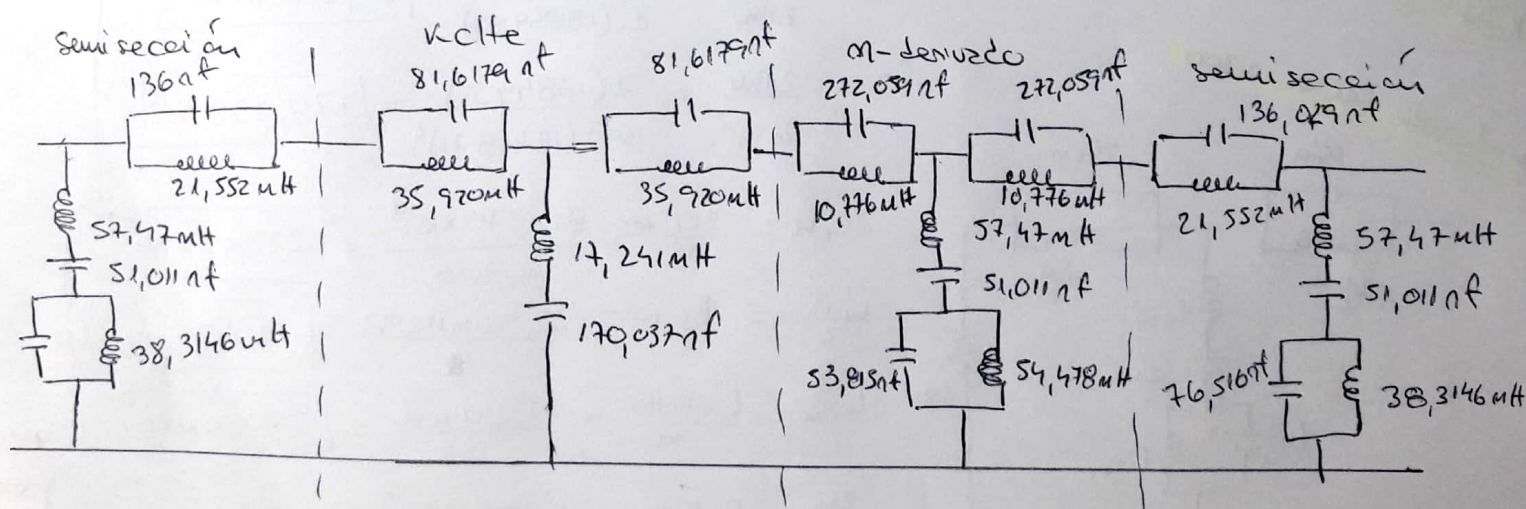 semi sección
136nf
21,552mH
57,47mH
51,011nf
38,3146mH
k cte
81,6179nf
35,920mH
17,241mH
170,037nf
81,6179nf
35,920mH
m-derivado
272,059nf
10,776mH
272,059nf
10,776mH
57,47mH
51,011nf
53,815nf
54,478mH
semi sección
136,029nf
21,552mH
57,47mH
51,011nf
76,516nf
38,3146mH